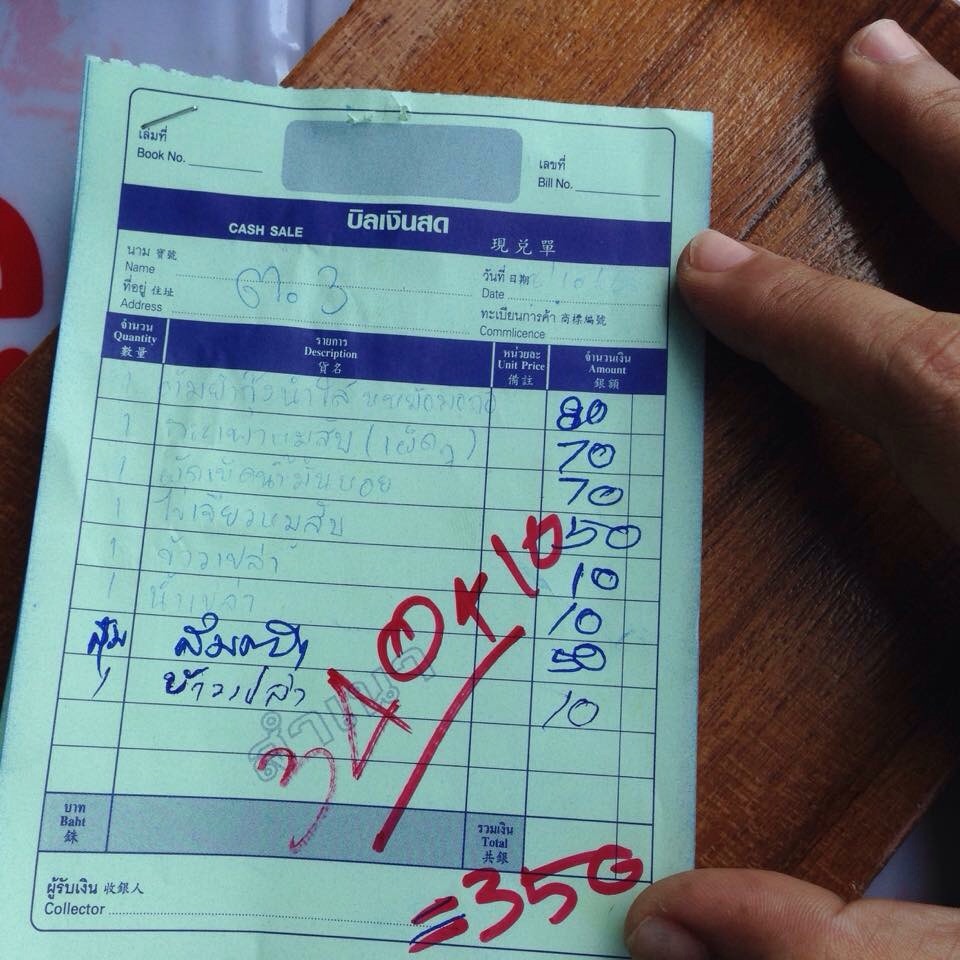 เล่มที่
Book No.
เลขที่
Bill No.
CASH SALE บิลเงินสด 現兌單
นาม 寶號
Name
ต.3
วันที่ 日期
Date
ที่อยู่ 住址
Address
ทะเบียนการค้า 商標編號
Commlicence
จำนวน
Quantity
數量
รายการ
Description
貨名
หน่วยละ
Unit Price
備註
จำนวนเงิน
Amount
銀額
1 80
1 กะเพราหมูสับ 70
1 ผัดเห็ดน้ำมันหอย 70
1 ไข่เจียวหมูสับ 50
1 ข้าวเปล่า 10
1 น้ำเปล่า 10
50
1 ข้าวเปล่า 10
สำเนา
340+10
บาท
Baht
銖
รวมเงิน
Total
共銀
=350
ผู้รับเงิน 收銀人
Collector